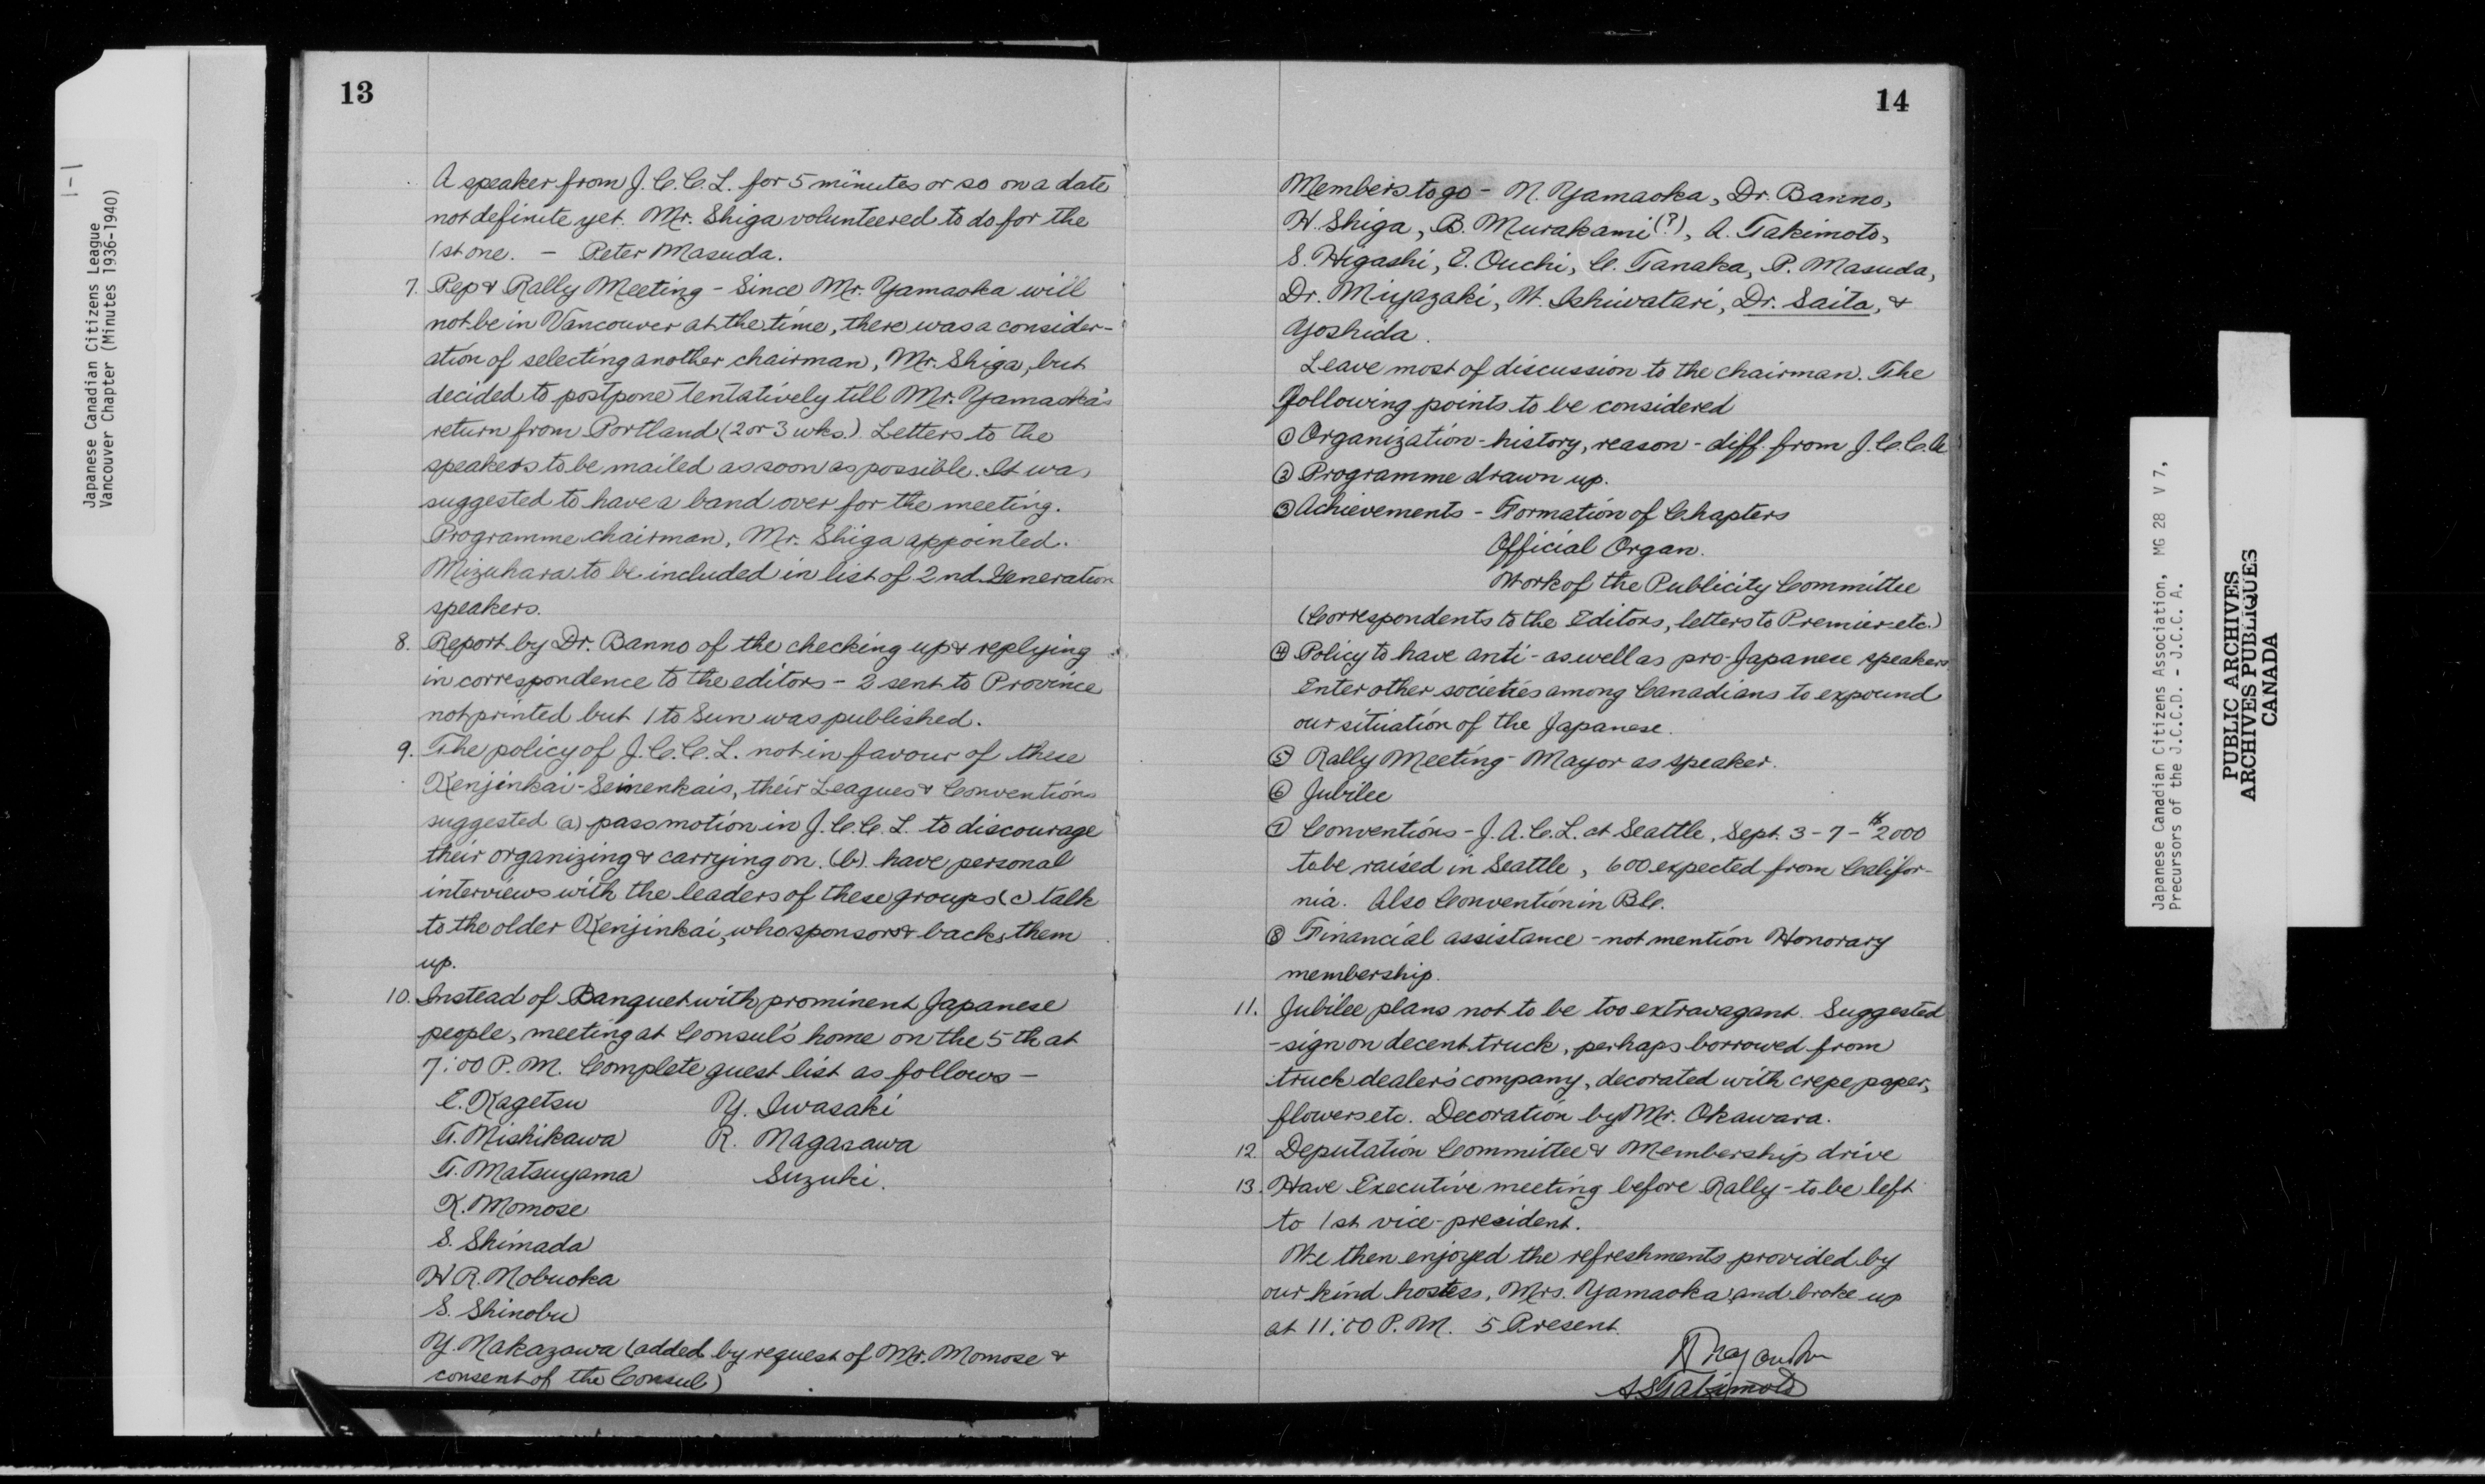 1-1
Japanese Canadian Citizens League
Vancouver Chapter (Minutes 1936-1940)
13
A speaker from J.C.C.L. for 5 minutes or so on a date
not definite yet. Mr. Shiga volunteered to do for the
1st one. - Peter Masuda.
7. Pep & Rally Meeting - Since Mr. Yamaoka will
not be in Vancouver at the time, there was a consider-
ation of selecting another chairman, Mr. Shiga, but
decided to postpone tentatively till Mr. Yamaoka's
return from Portland (2 or 3 wks.) Letters to the
speakers to be mailed as soon as possible. It was
suggested to have a band over for the meeting.
Programme chairman, Mr. Shiga appointed.
Mizuhara to be included in list of 2nd Generation
speakers.
8. Report by Dr. Banno of the checking up & replying
in correspondence to the editors - 2 sent to Province
not printed but 1 to Sun was published.
9. The policy of J.C.C.L. not in favour of these
Kenjinkai-Seinenkais, their Leagues & Conventions
suggested (a) pass motion in J.C.C.L. to discourage
their organizing & carrying on. (b) have personal
interviews with the leaders of these groups (c) talk
to the older Kenjinkai, who sponsors & backs them
up.
10. Instead of Banquet with prominent Japanese
people, meeting at Consul's home on the 5th at
7:00 P.M. Complete guest list as follows -
E. Kagetsu Y. Iwasaki
T. Nishikawa R. Nagasawa
T. Matsuyama Suzuki.
K. Momose
S. Shimada
H R. Nobuoka
S. Shinobu
Y. Nakazawa (added by request of Mr. Momose &
consent of the Consul)
14
Members to go - N. Yamaoka, Dr. Banno,
H. Shiga, B. Murakami (?), A. Takimoto,
S. Higashi, E. Ouchi, C. Tanaka, P. Masuda,
Dr. Miyazaki, W. Ishiwatari, Dr. Saita, &
Yoshida.
Leave most of discussion to the chairman. The
following points to be considered
① Organization - history, reason - diff. from J.C.C.A
② Programme drawn up.
③ Achievements - Formation of Chapters
Official Organ.
Work of the Publicity Committee
(Correspondents to the Editors, letters to Premier etc.)
④ Policy to have anti- as well as pro-Japanese speakers
Enter other societies among Canadians to expound
our situation of the Japanese.
⑤ Rally Meeting - Mayor as speaker.
⑥ Jubilee
⑦ Conventions - J.A.C.L. at Seattle, Sept. 3 - 7 - $2000
to be raised in Seattle, 600 expected from Califor-
nia. Also Convention in B.C.
⑧ Financial assistance - not mention Honorary
membership.
11. Jubilee plans not to be too extravagant. Suggested
- sign on decent truck, perhaps borrowed from
truck dealer's company, decorated with crepe paper,
flowers etc. Decoration by Mr. Okawara.
12. Deputation Committee & Membership drive
13. Have Executive meeting before Rally - to be left
to 1st vice-president.
We then enjoyed the refreshments provided by
our kind hostess, Mrs. Yamaoka and broke up
at 11:00 P.M. 5 Present.
A.S. Takimoto
Japanese Canadian Citizens Association, MG 28 V 7,
Precursors of the J.C.C.D. - J.C.C. A.
PUBLIC ARCHIVES
ARCHIVES PUBLIQUES
CANADA